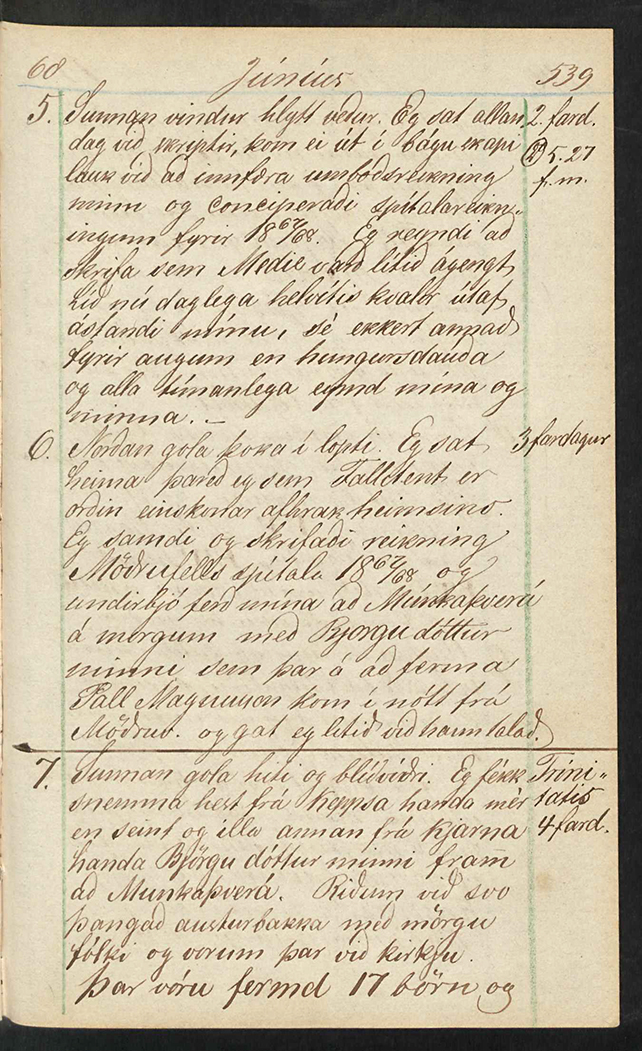 68 Júníus 539
5. Sunnan vindur hlytt vedur. Eg sat allan 2. fard.
dag vid skriptir, kom ei út í bágu skapi 5.27
lauk vid ad innfæra umbodsreikning f.m.
minn og conciperadi spítalareikn-
ingum fyrir 1867/68. Eg reyndi ad
skrifa sem Medie vard litid ágengt
Líd nú daglega helvítis kvalir útaf
ástandi mínu, sé ekkert annad
fyrir augum en hungursdauda
og alla tímanlega eymd mína og
minna. -
6. Nordan gola þoka í lopti. Eg sat 3 fardagur
heima þared eg sem Fallitent er
ordin einskonar afhrak heimsins.
Eg samdi og skrifadi reikning
Mödrufells spítala 1867/68 og
undirbjó ferd mína ad Múnkaþverá
á morgum med Björgu dóttur
minni sem þar á ad ferma
Páll Magnusson kom í nótt frá
Mödruv. og gat eg litid vid hann talad.
7. Sunnan gola hiti og blídvidri. Eg fékk Tríni-
snemma hest frá Keppsa handa mér tatis
en seint og illa annan frá Kjarna 4 fard.
handa Björgu dóttur minni fram
ad Munkaþverá. Ridum vid svo
þangad austurbakka med mörgu
fólki og vorum þar vid kirkju.
Þar vóru fermd 17 börn og